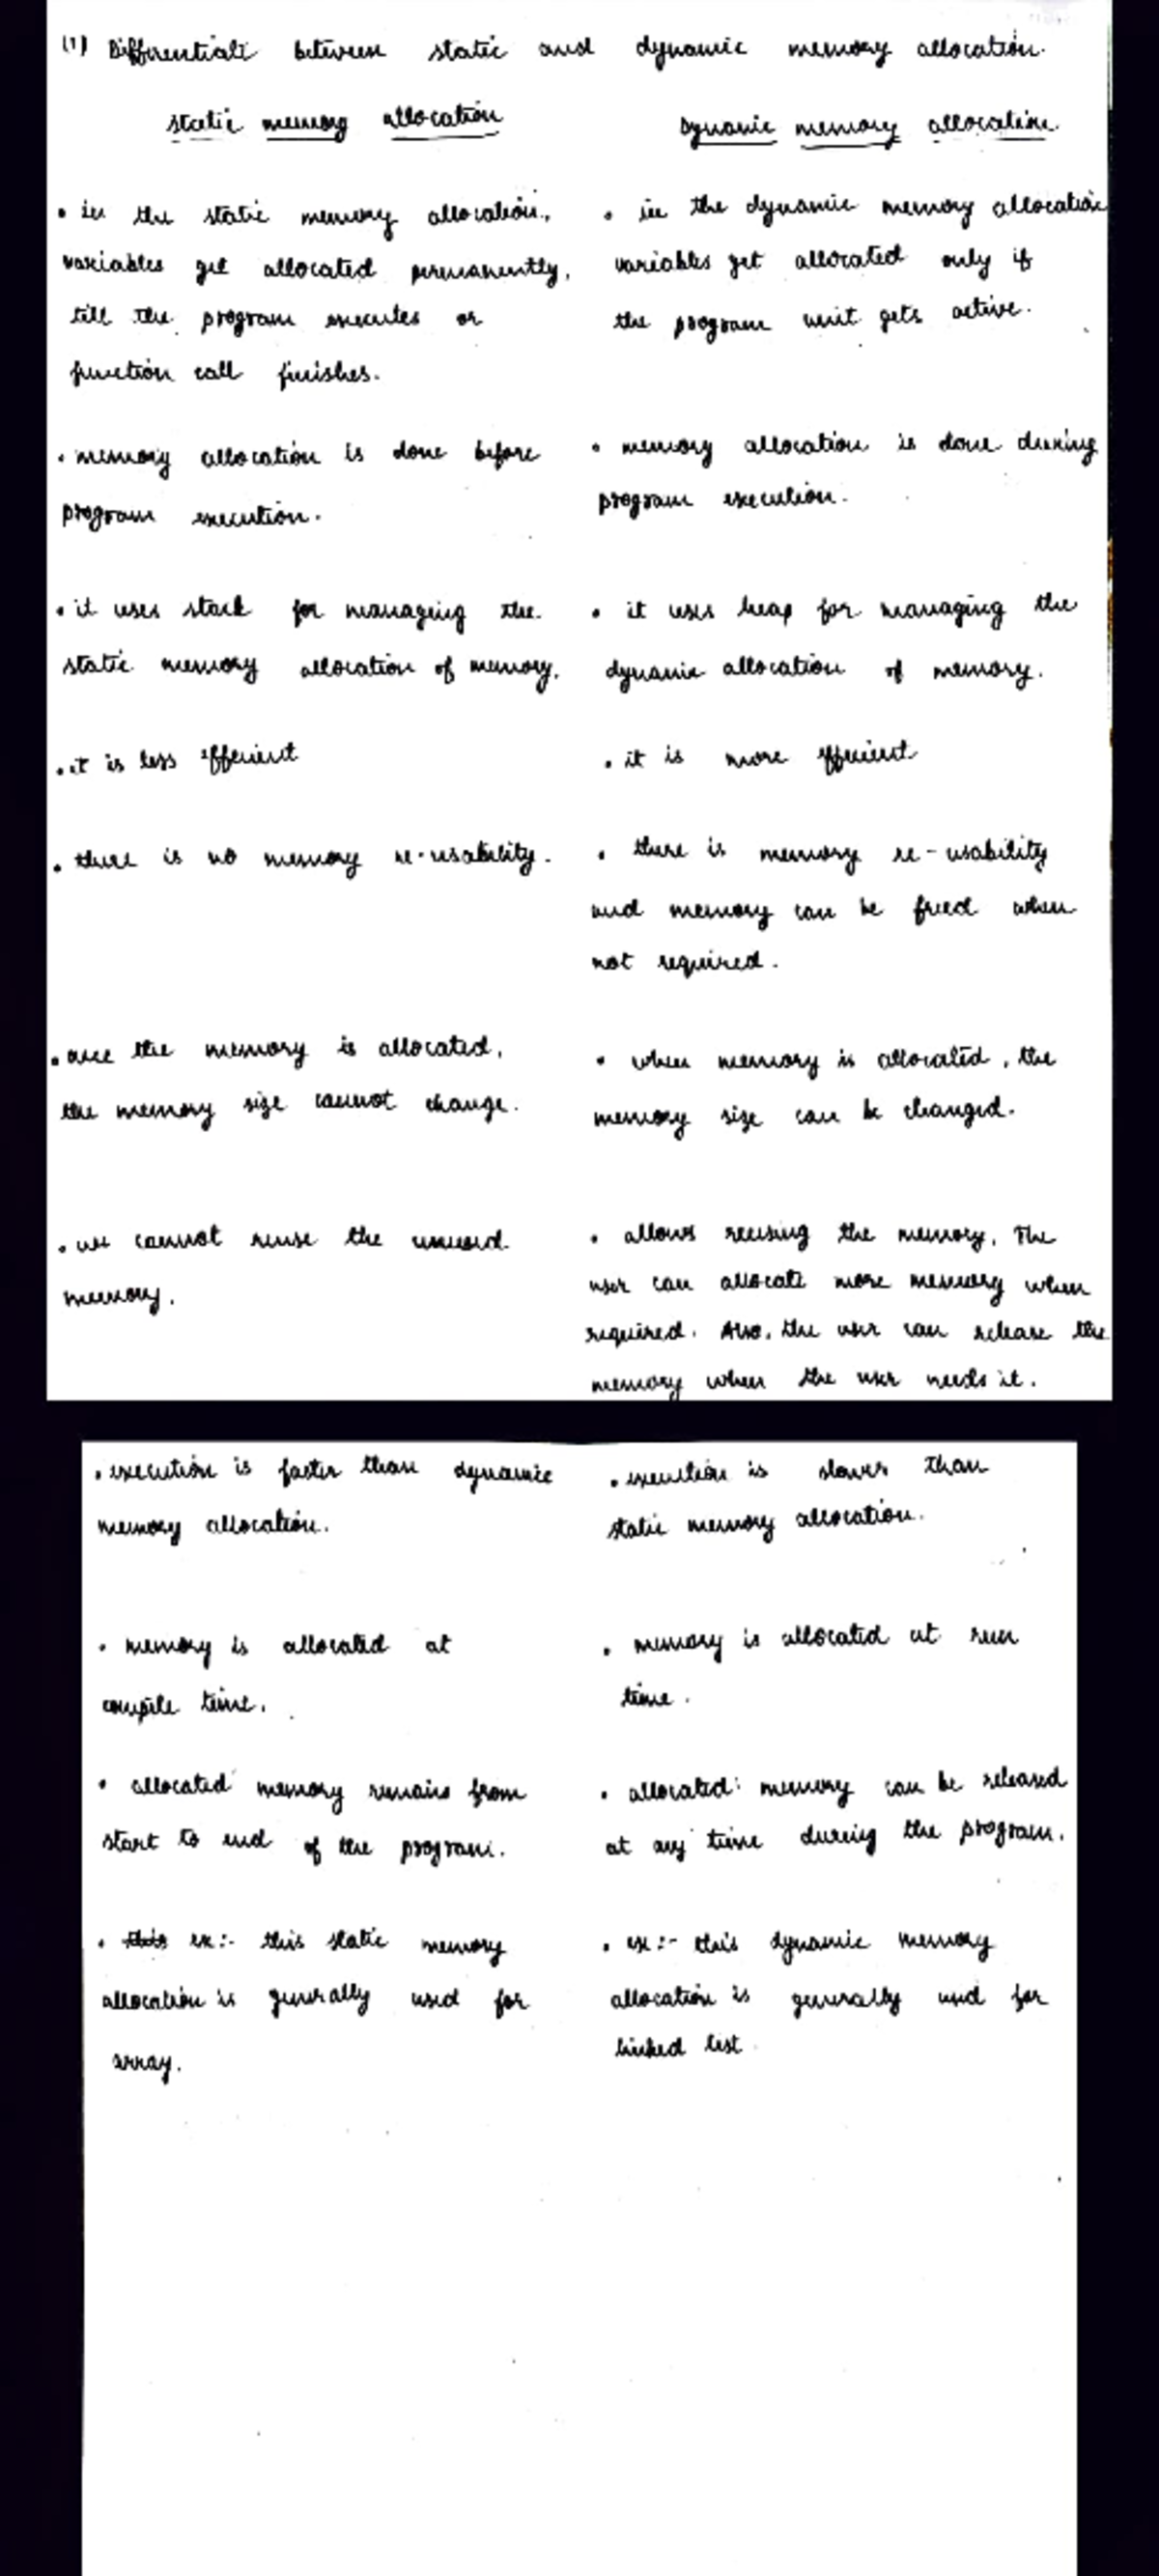 (1) Differentiate between static and dynamic memory allocation.
static memory allocation
Dynamic memory allocation
• in the static memory allocation,
variables get allocated permanently,
till the program executes or
function call finishes.
• in the dynamic memory allocation
variables get allocated only if
the program unit gets active.
• memory allocation is done before
program execution.
• memory allocation is done during
program execution.
• it uses stack for managing the
static memory allocation of memory.
• it uses heap for managing the
dynamic allocation of memory.
• it is less efficient
• it is more efficient
• there is no memory re-usability.
• there is memory re-usability
and memory can be freed when
not required.
• once the memory is allocated,
the memory size cannot change.
• when memory is allocated, the
memory size can be changed.
• we cannot reuse the unused
memory.
• allows reusing the memory. The
user can allocate more memory when
required. Also, the user can release the
memory when the user needs it.
• execution is faster than dynamic
memory allocation.
• execution is slower than
static memory allocation.
• memory is allocated at
compile time.
• memory is allocated at run
time.
• allocated memory remains from
start to end of the program.
• allocated memory can be released
at any time during the program.
• this ex:- this static memory
allocation is generally used for
array.
• ex:- this dynamic memory
allocation is generally used for
linked list.